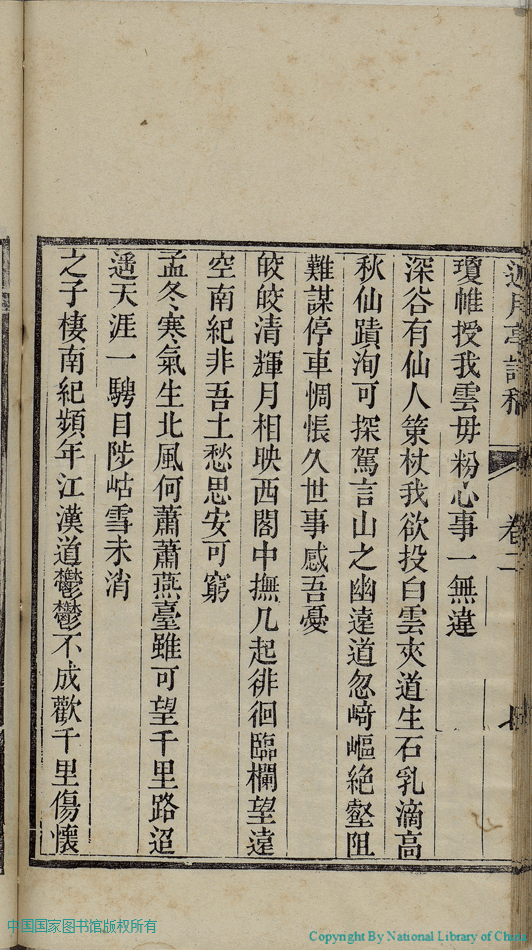 卷二
瓊帷授我雲毋粉心事一無違
深谷有仙人策杖我欲投白雲夾道生石乳滴高
秋仙蹟洵可探駕言山之幽遠道忽﨑嶇絶壑阻
難謀停車惆悵久世事感吾憂
皎皎清輝月相映西閣中撫几起徘徊臨欄望遠
空南紀非吾土愁思安可窮
孟冬寒氣生北風何蕭蕭燕臺雖可望千里路迢
遞天涯一騁目陟岵雪未消
之子棲南紀頻年江漢道鬱鬱不成歡千里傷懷
中国国家图书馆版权所有
Copyright By National Library of China